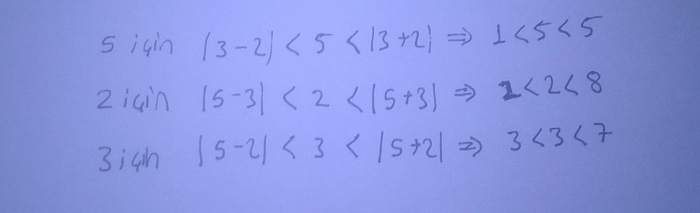 5 için |3-2| < 5 < |3+2| ⇒ 1<5<5
2 için |5-3| < 2 < |5+3| ⇒ 2<2<8
3 için |5-2| < 3 < |5+2| ⇒ 3<3<7